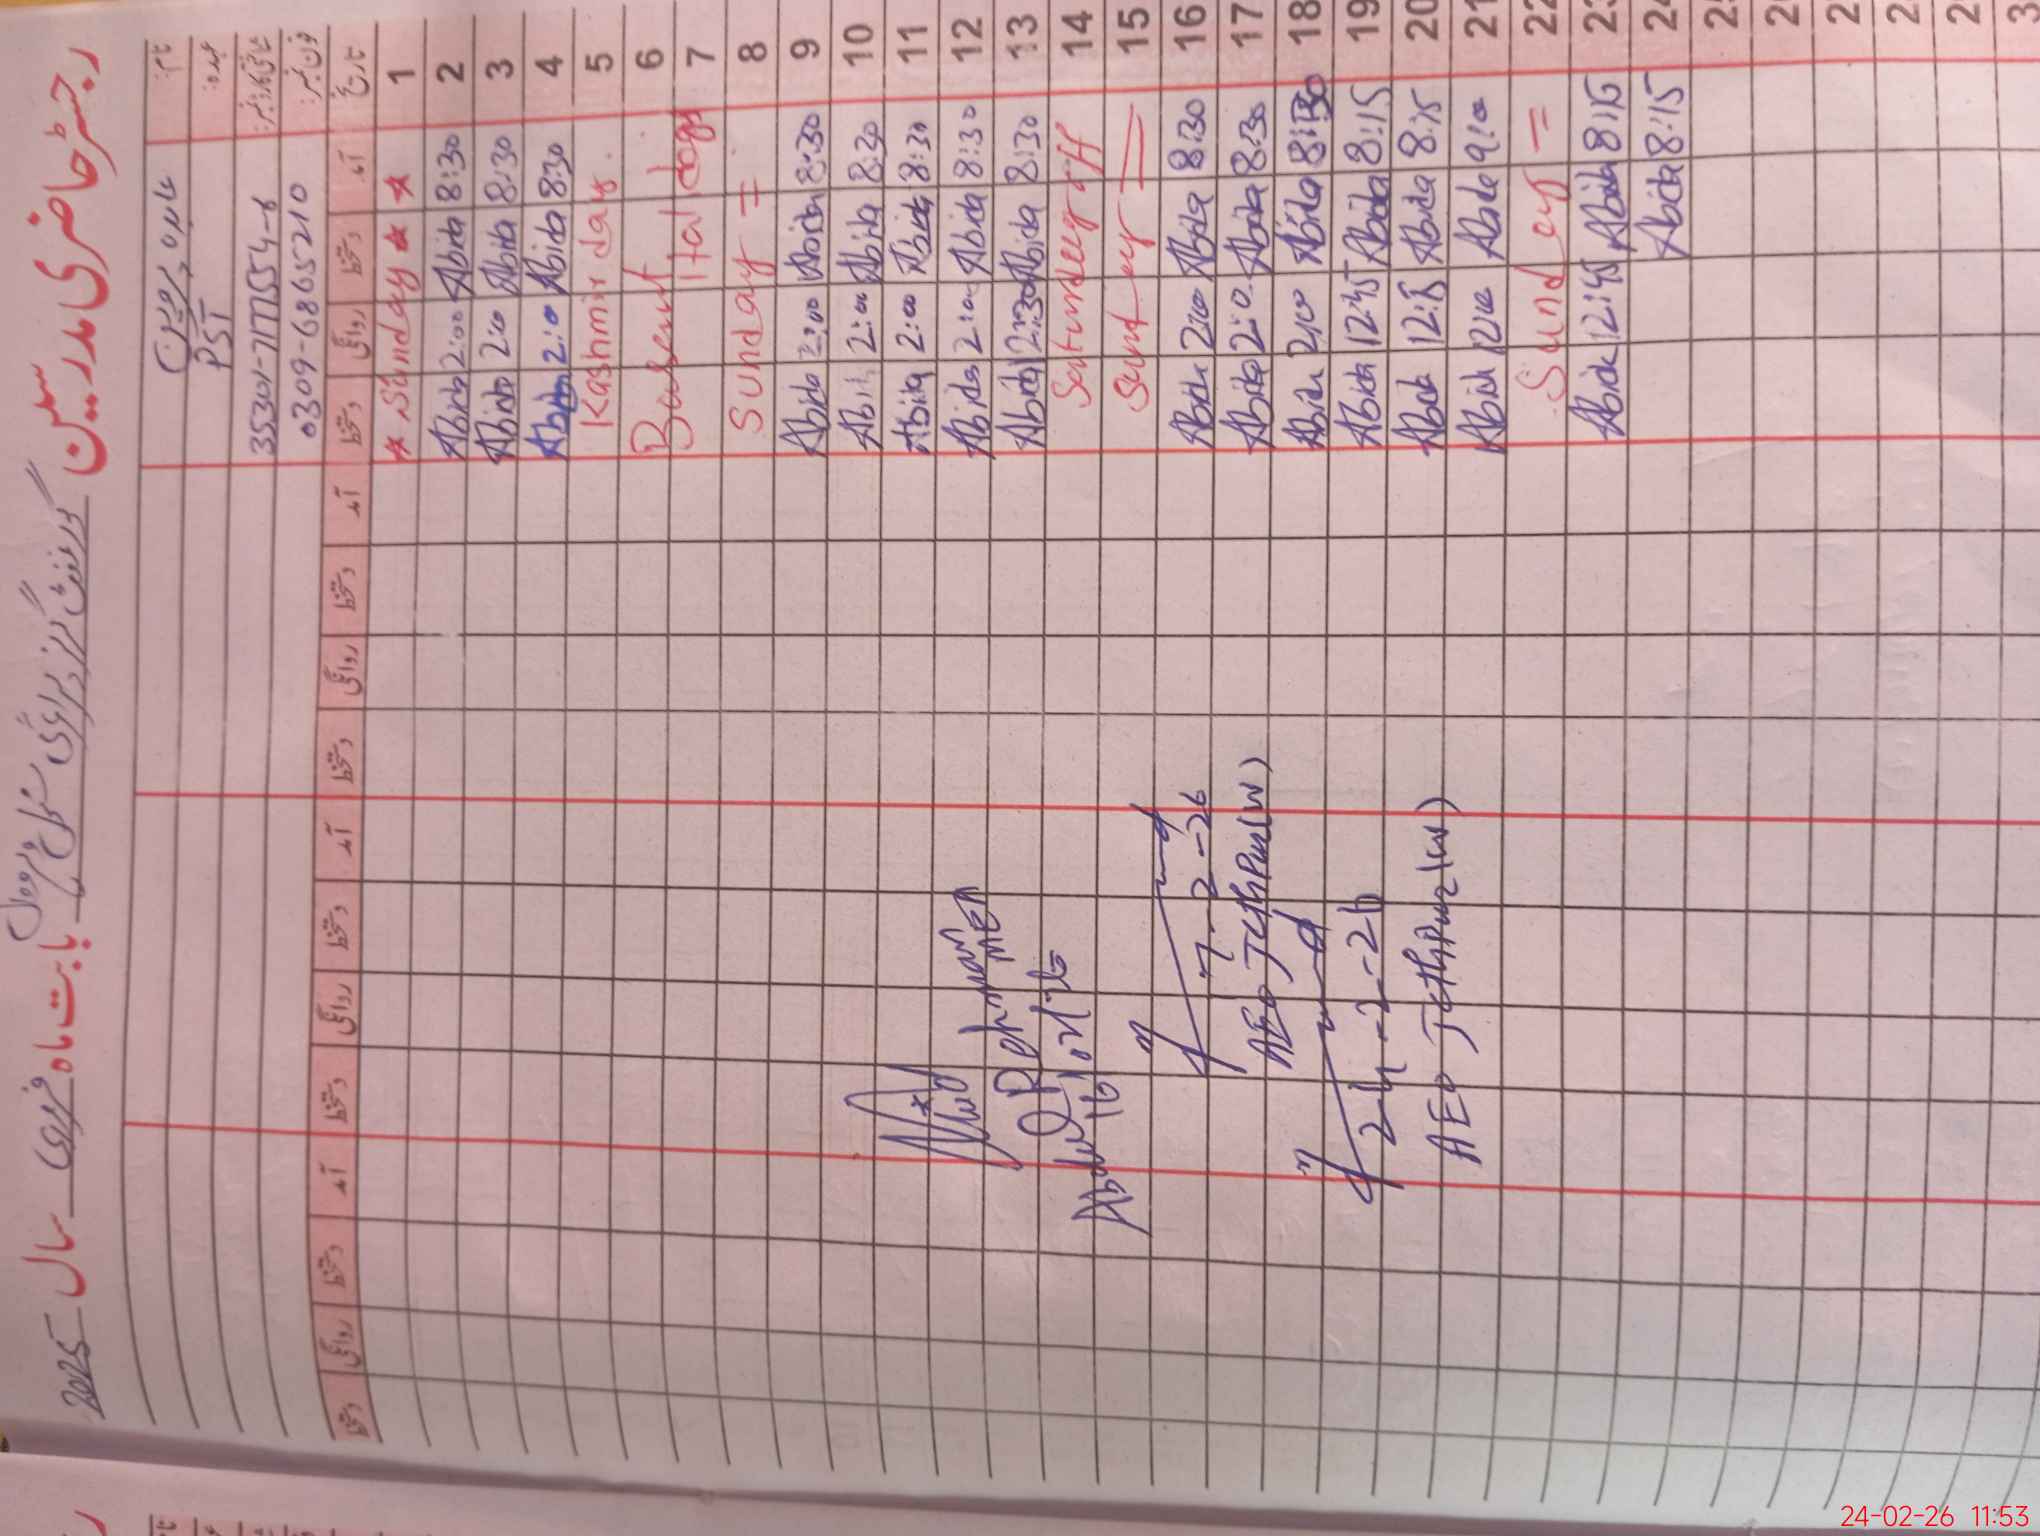 رجسٹر حاضری مدرسین گورنمنٹ گرلز پرائمری سکول بابت ماہ فروری سال 2025
نام:
عہدہ: PST
شناختی کارڈ نمبر: 35301-7177554-8
فون نمبر: 0309-6865210
تاریخ آمد دستخط روانگی دستخط آمد دستخط روانگی دستخط آمد دستخط روانگی دستخط آمد دستخط روانگی دستخط
1 * * Sunday *
2 8:30 Abida 2:00 Abida
3 8:30 Abida 2:00 Abida
4 8:30 Abida 2:00 Abida
5 Kashmir day.
6 Basent
7
8 Sunday =
9 8:30 Abida 2:00 Abida
10 8:30 Abida 2:00 Abida
11 8:30 Abida 2:00 Abida
12 8:30 Abida 2:00 Abida
13 8:30 Abida 12:30 Abida
14 Saturdey off
15 Sundey =
16 8:30 Abida 2:00 Abida
17 8:30 Abida 2:0 Abida
18 8:30 Abida 2:00 Abida
19 8:15 Abida 12:45 Abida
20 8:15 Abida 12:15 Abida
21 9:00 Abida 12:00 Abida
22 Sundey =
23 8:15 Abida 12:45 Abida
24 8:15 Abida
Abdul Rehman
MEA
17-2-26
AEO Jethpur(W)
24-2-26
AEO Jethpur(W)
24-02-26 11:53